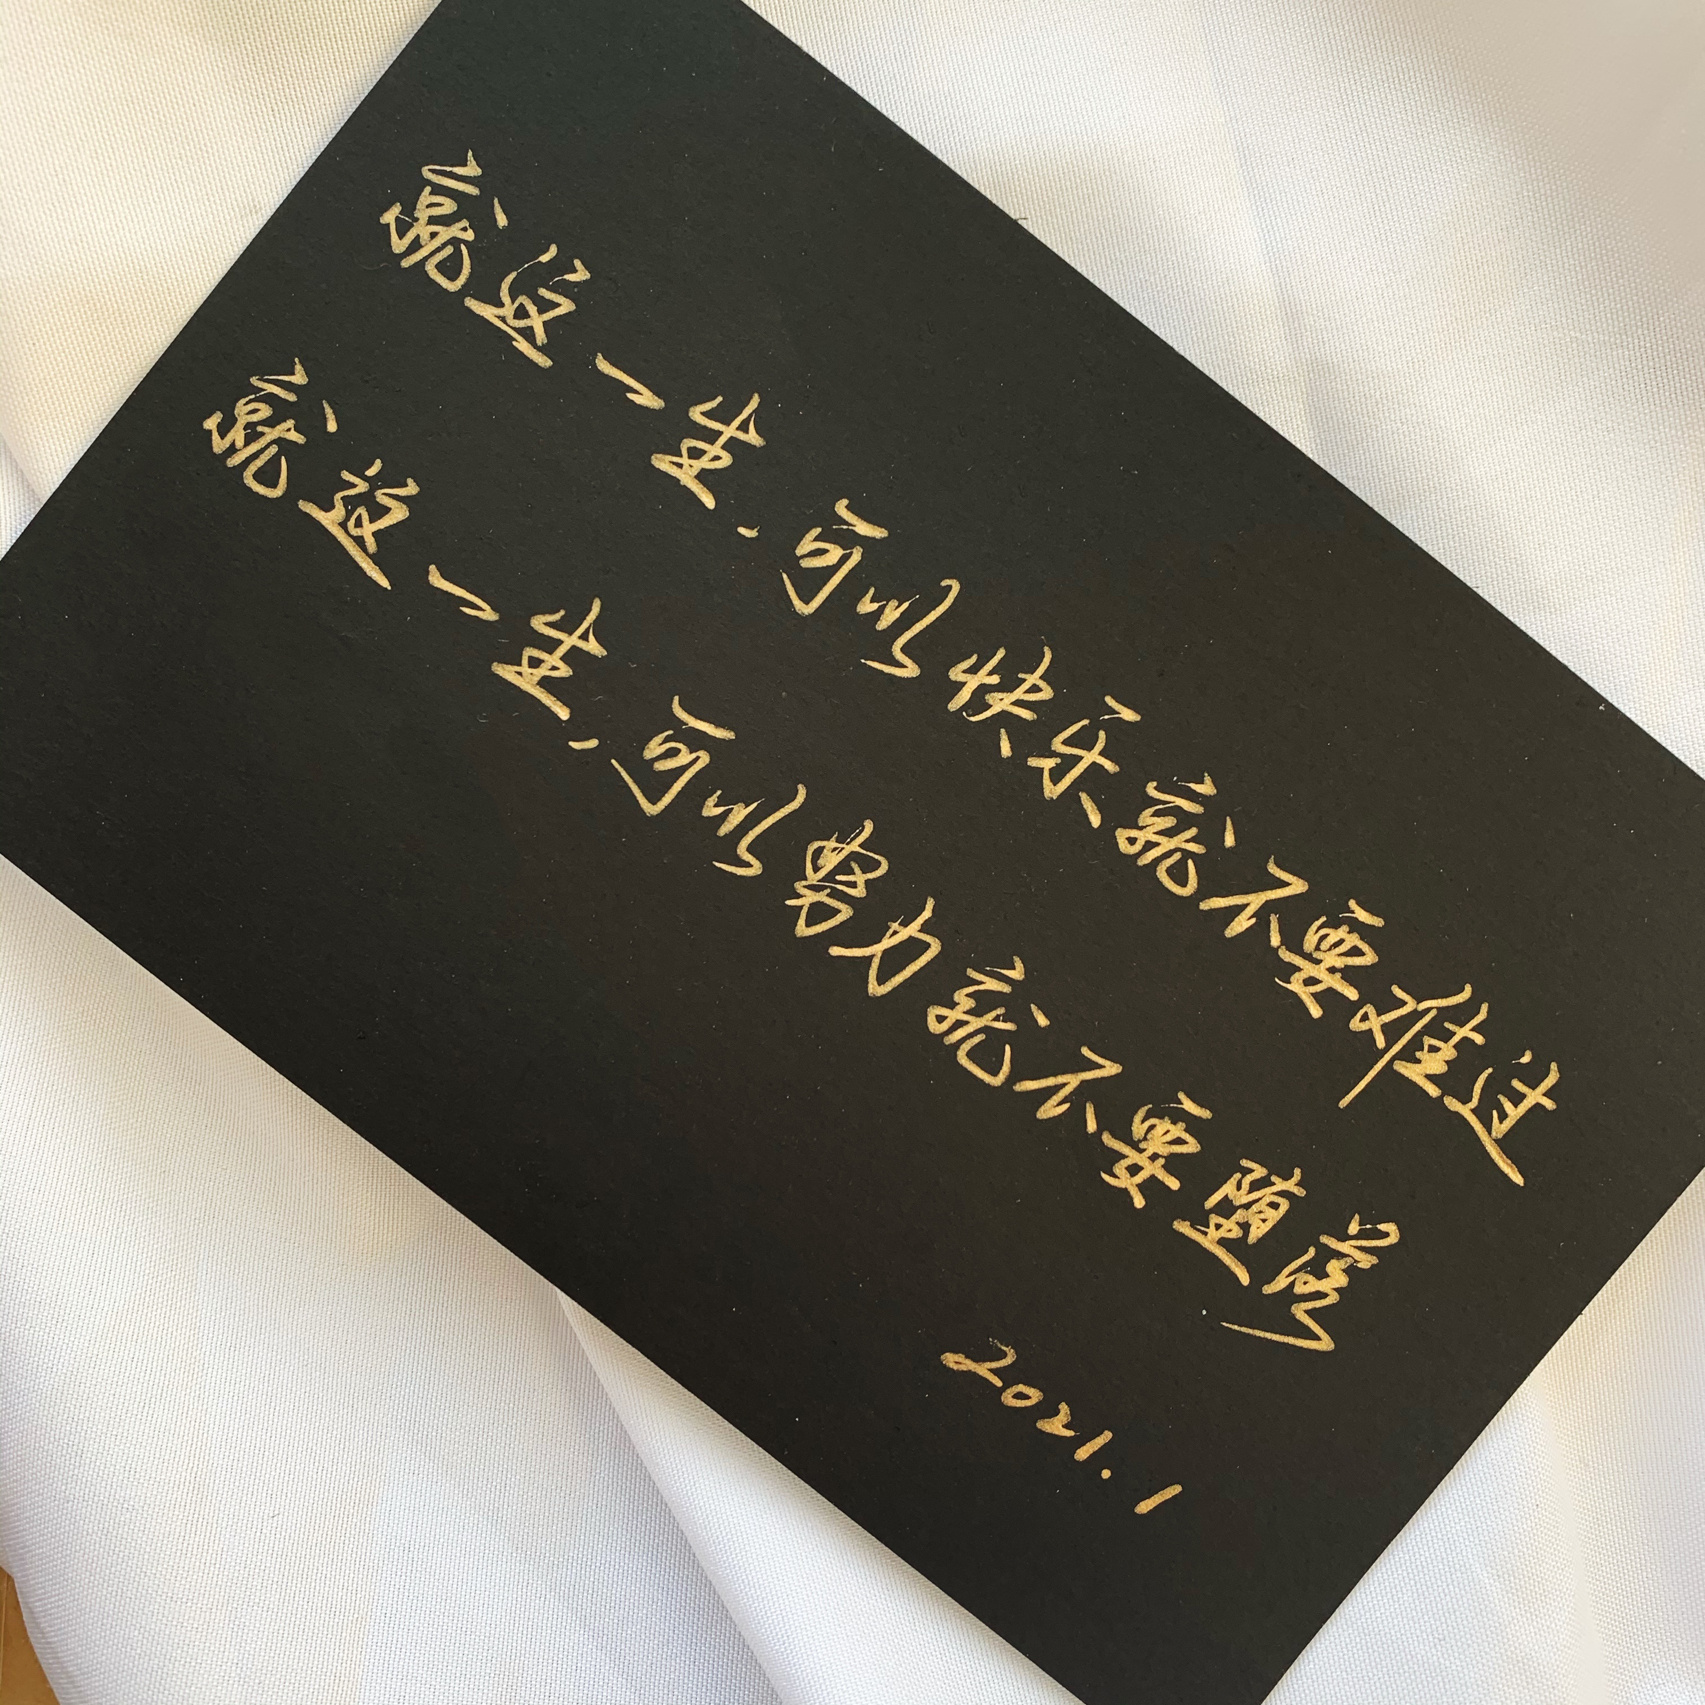 就这一生，可以快乐就不要难过
就这一生，可以努力就不要堕落
2021.1